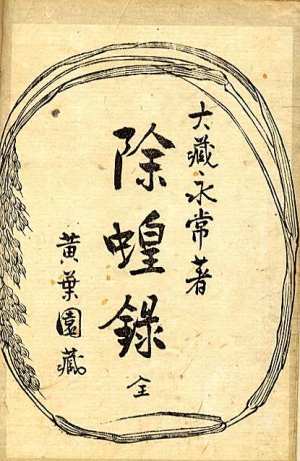 大藏永常著
除蝗錄 全
黄葉園藏